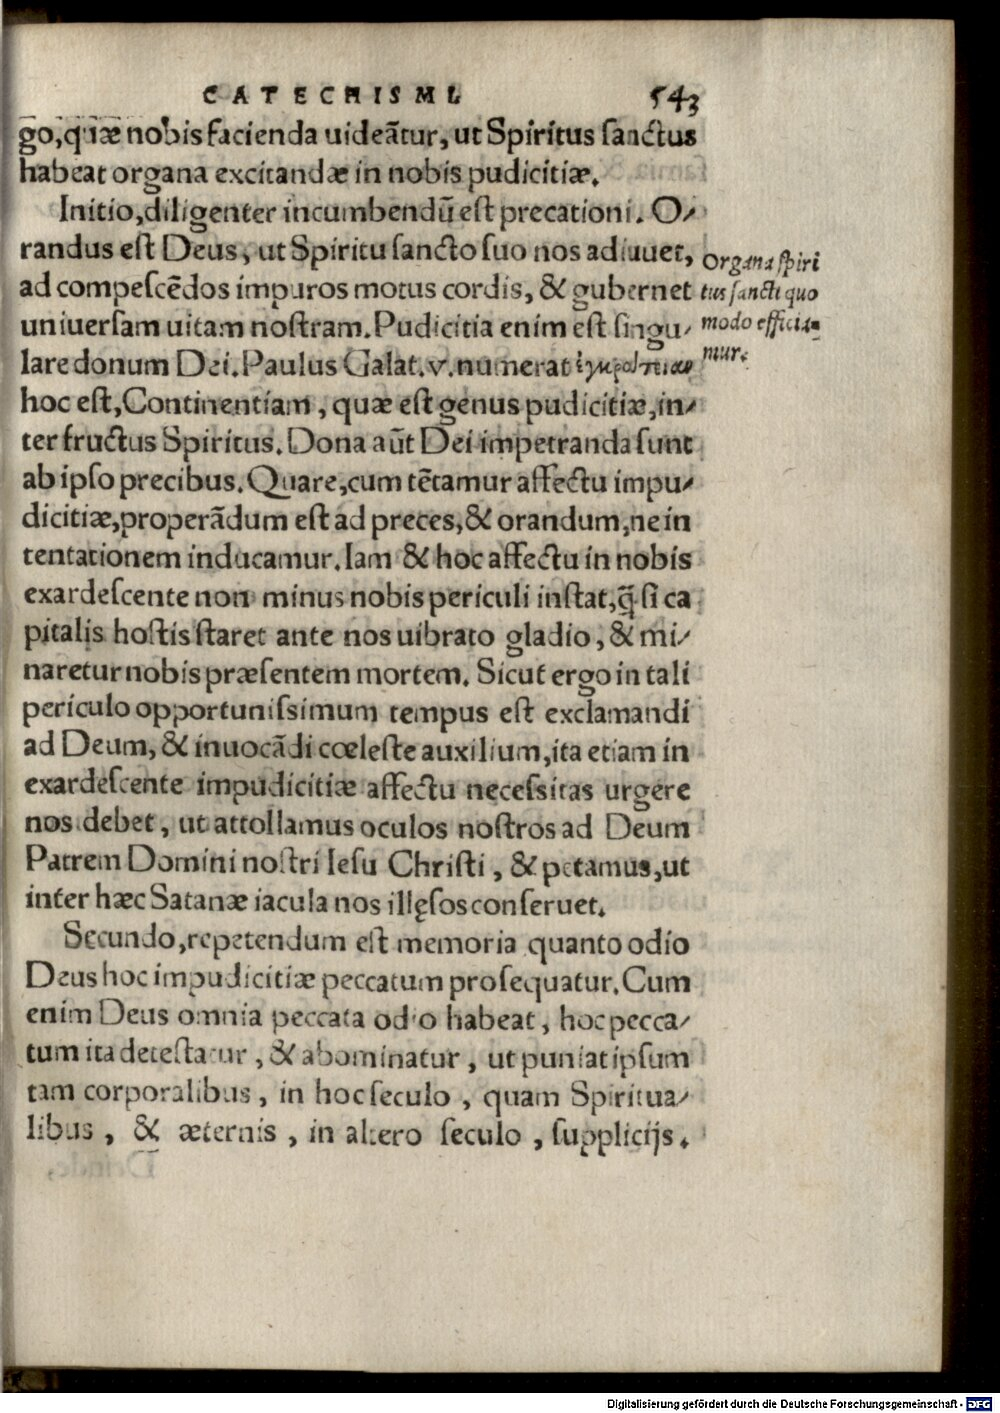 CATECHISMI. 543
go, quæ nobis facienda uideātur, ut Spiritus ſanctus
habeat organa excitandæ in nobis pudicitiæ.
Initio, diligenter incumbendū eſt precationi. O-
randus eſt Deus, ut Spiritu ſancto ſuo nos adiuuet,
ad compeſcēdos impuros motus cordis, & gubernet
uniuerſam uitam noſtram. Pudicitia enim eſt ſingu-
lare donum Dei. Paulus Galat. v. numerat ἐγκράτειαν
hoc eſt, Continentiam, quæ eſt genus pudicitiæ, in-
ter fructus Spiritus. Dona aūt Dei impetranda ſunt
ab ipſo precibus. Quare, cum tētamur affectu impu-
dicitiæ, properādum eſt ad preces, & orandum, ne in
tentationem inducamur. Iam & hoc affectu in nobis
exardeſcente non minus nobis periculi inſtat, q̄ ſi ca
pitalis hoſtis ſtaret ante nos uibrato gladio, & mi-
naretur nobis præſentem mortem. Sicut ergo in tali
periculo opportuniſsimum tempus eſt exclamandi
ad Deum, & inuocādi cœleſte auxilium, ita etiam in
exardeſcente impudicitiæ affectu neceſsitas urgere
nos debet, ut attollamus oculos noſtros ad Deum
Patrem Domini noſtri Ieſu Chriſti, & petamus, ut
inter hæc Satanæ iacula nos illęſos conſeruet.
Secundo, repetendum eſt memoria quanto odio
Deus hoc impudicitiæ peccatum proſequatur. Cum
enim Deus omnia peccata odio habeat, hoc pecca-
tum ita deteſtatur, & abominatur, ut puniat ipſum
tam corporalibus, in hoc ſeculo, quam Spiritua-
libus, & æternis, in altero ſeculo, ſupplicijs.
Organa ſpiri
tus ſancti quo
modo efficia-
mur.
Digitalisierung gefördert durch die Deutsche Forschungsgemeinschaft - DFG